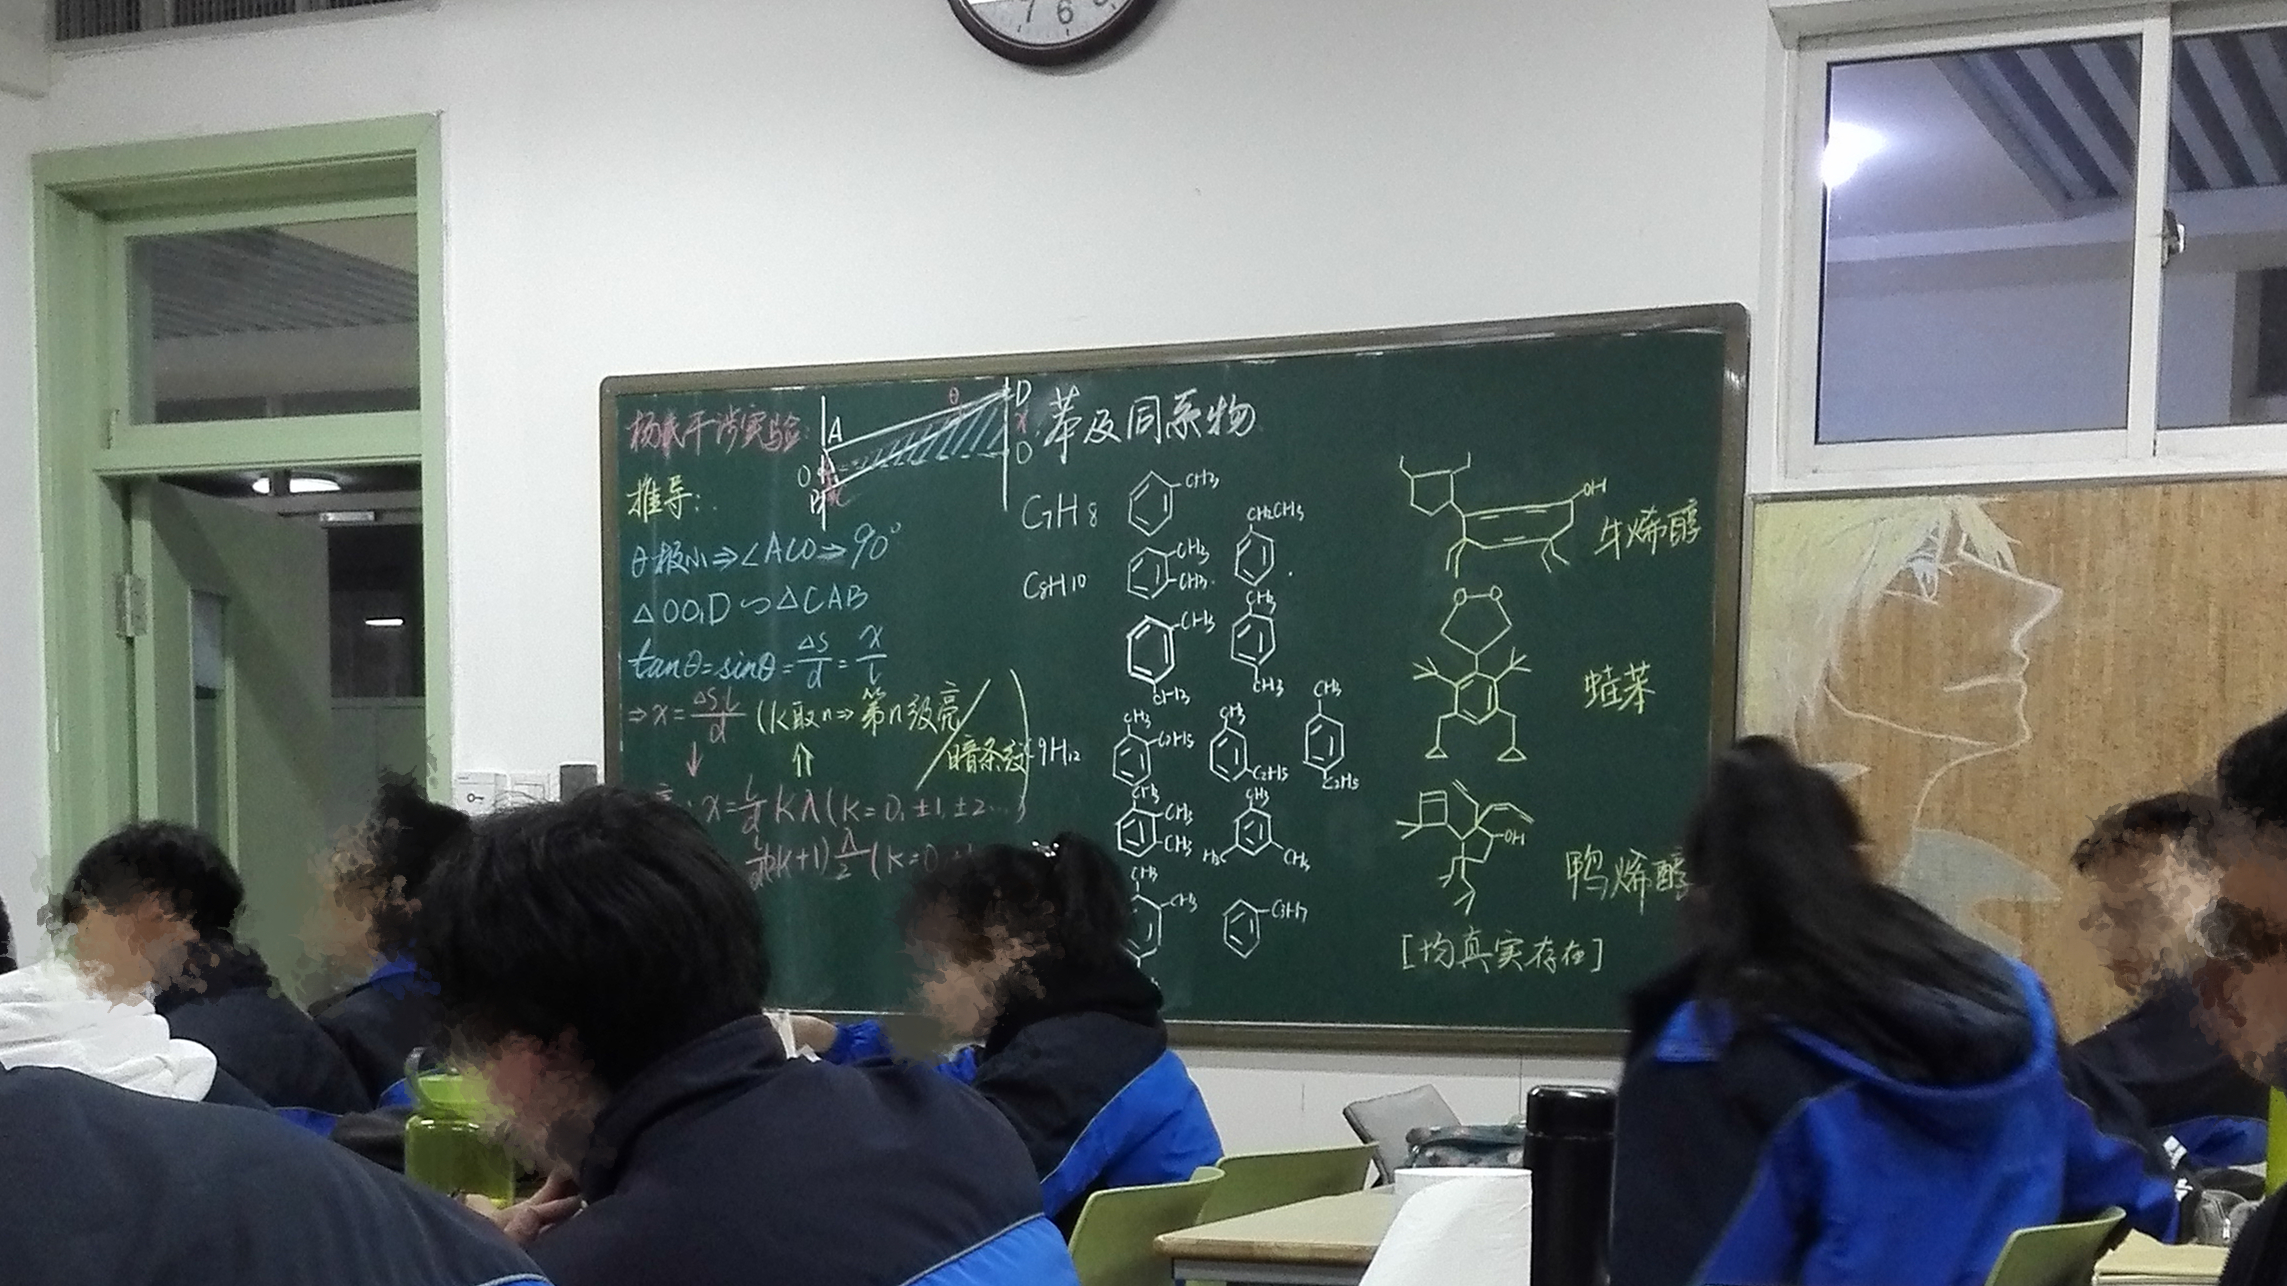 7 6
杨氏干涉实验:
A
θ
D
x
O
推导:
θ极小⇒∠ACO→90°
△OO₁D∽△CAB
tanθ=sinθ=Δs/d=x/l
⇒x=Δs·l/d (k取n⇒第n级亮/暗条纹)
x=l/d kλ(k=0,±1,±2…)
(2k+1)λ/2 (k=0,
苯及同系物
C7H8
CH3
CH2CH3
C8H10
CH3
CH3
CH3
CH3
CH3
CH3
C9H12
CH3
C2H5
CH3
C2H5
CH3
C2H5
CH3
CH3
CH3
CH3
H3C
CH3
CH3
CH3
C3H7
OH
牛烯醇
O O
蛙苯
OH
鸭烯醇
[均真实存在]